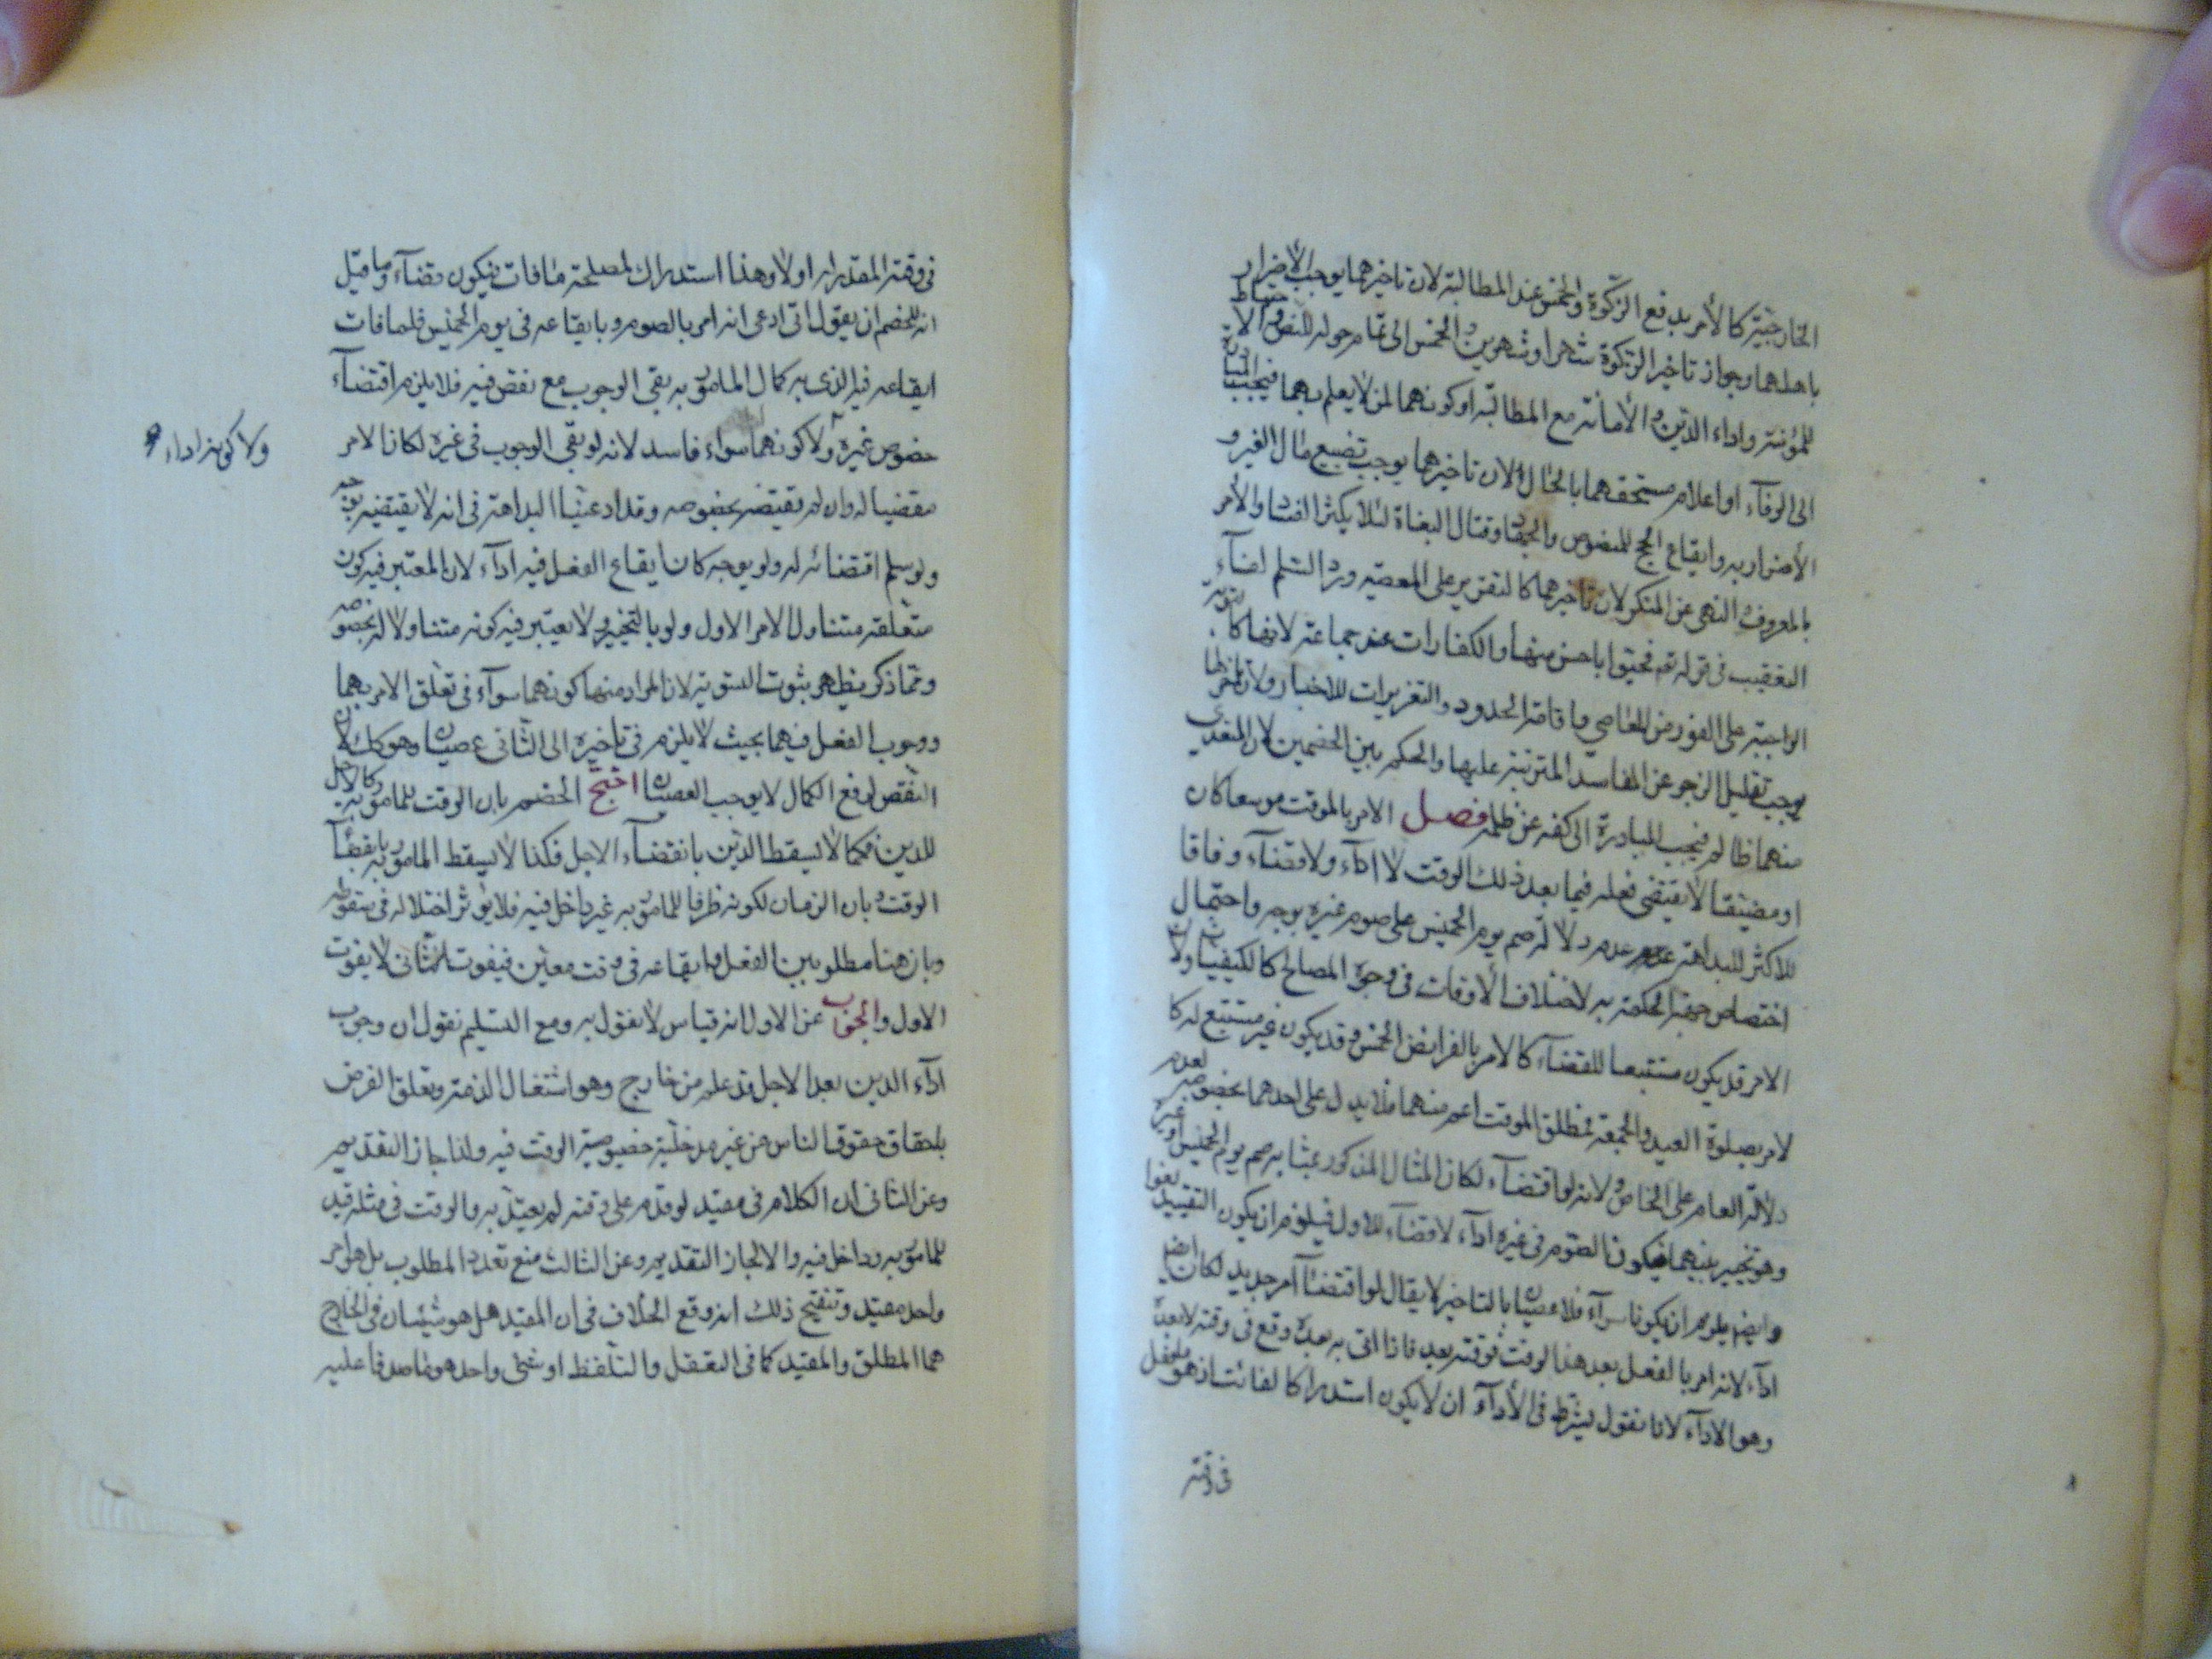 الخارجيّة كالأمر بدفع الزكوة والخمس عند المطالبة لان تاخيرهما يوجب الاضرار
باهلهما وجواز تاخير الزكوة شهرا او شهرين والخمس الى تمام حوله للنصوص والاحتياط
للمؤنة واداء الدين والأمانة مع المطالبة او كونهما لمن لا يعلم بهما فيجب المبادرة
الى الوفآء او اعلام مستحقهما بالحال لان تاخيرهما يوجب تضييع مال الغير و
الأضرار به وايقاع الحج للنصوص والجهاد وقتال البغاة لئلا يكثر الفساد والأمر
بالمعروف والنهى عن المنكر لان تاخيرهما كالتقرير على المعصية ورد السّلم لفآء
التعقيب فى قوله تع فحيّوا باحسن منها والكفارات عند جماعة لانها كالتوبة
الواجبة على الفور من المعاصي واقامة الحدود والتعزيرات للاخبار ولان تاخيرها
يوجب تقليل الزجر عن المفاسد المترتبة عليها والحكم بين الخصمين لان المتعدى
منهما ظالم فيجب المبادرة الى كفه عن ظلمه فصل الامر بالموقت موسعا كان
او مضيّقا لا يقتضى فعله فيما بعد ذلك الوقت لا ادآء ولا قضآء وفاقا
للاكثر للبداهة عدم دلالة صم يوم الخميس على صوم غيره بوجه واحتمال
اختصاص جهة الحكمة به لاختلاف الأوقات فى وجوه المصالح كالكيفيات ولان
الامر قد يكون مستتبعا للقضآء كالامر بالفرائض الخمس وقد يكون غير مستتبع له كا
لامر بصلوة العيد والجمعة فمطلق الموقت اعم منهما فلا يدل على احدهما بخصوصه لعدم
دلالة العام على الخاص ولانه لو اقتضاه لكان المثال المذكور بمثابه صم يوم الخميس او غيره
وهو تخيير بينهما فيكون الصوم فى غيره ادآء لا قضآء للاول فيلزم ان يكون التقييد لغوا
وايضم يلزم ان يكونا سوآء فلا عصيان بالتاخير لا يقال لو اقتضاه امر جديد لكان ايضا
ادآء لانه امر بالفعل بعد هذا الوقت فوقته بعد فاذا اتى به بعده وقع فى وقته لا بعده
وهو الادآء لانا نقول يشترط فى الأدآء ان لا يكون استدراكا لفائت اذ هو ما فعل
فى وقته
فى وقته المقدر له اولا وهذا استدراك لمصلحة ما فات فيكون قضآء وما قيل
انه للخصم ان يقول انى ادعى انه امر بالصوم وبايقاعه فى يوم الخميس فلما فات
ايقاعه فيه الذى به كمال المامور به بقى الوجوب مع نقص فيه فلا يلزم اقتضآء
خصوص غيره ولا كونهما سواء فاسد لانه لو بقى الوجوب فى غيره لكان الامر
ولا كونه اداء
مقتضيا له وان لم يقتضه بخصوصه وقد ادعينا البداهة فى انه لا يقتضيه بوجه
ولو سلم اقتضائه له ولو بوجه كان ايقاع الفعل فيه ادآء لان المعتبر فيه كون
متعلقه متناول الامر الاول ولو بالتخيير ولا يعتبر فيه كونه متناولا له بخصوصه
ومما ذكر يظهر ثبوت التسوية لان المراد منها كونهما سوآء فى تعلق الامر بهما
ووجوب الفعل فيهما بحيث لا يلزم فى تاخيره الى الثانى عصيان وهو كك لان
النقص لرفع الكمال لا يوجب العصيان احتج الخصم بان الوقت للمامور به كالاجل
للدين فكما لا يسقط الدين بانقضآء الاجل فكذا لا يسقط المامور به بانقضآء
الوقت وبان الزمان لكونه ظرفا للمامور به غير داخل فيه فلا يؤثر اختلاله فى سقوطه
وبان هنا مطلوبين الفعل وايقاعه فى وقت معين فبفوت الثانى لا يفوت
الاول والجواب عن الاول انه قياس لا نقول به ومع التسليم نقول ان وجوب
ادآء الدين بعد الاجل قد علم من خارج وهو اشتغال الذمة وتعلق الغرض
بلحقاق حقوق الناس من غير مدخلية خصوصية الوقت فيه ولذا جاز التقديم
وعن الثانى ان الكلام فى مقيد لو قدم على وقته لم يعتد به والوقت فى مثله قيد
للمامور به وداخل فيه والا لجاز التقديم وعن الثالث منع تعدد المطلوب بل هو امر
واحد مقيد وتنقيح ذلك انه وقع الخلاف فى ان المقيد هل هو شيئان فى الخارج
هما المطلق والمقيد كما فى التعقل والتلفظ او شئ واحد هو ما صدقا عليه